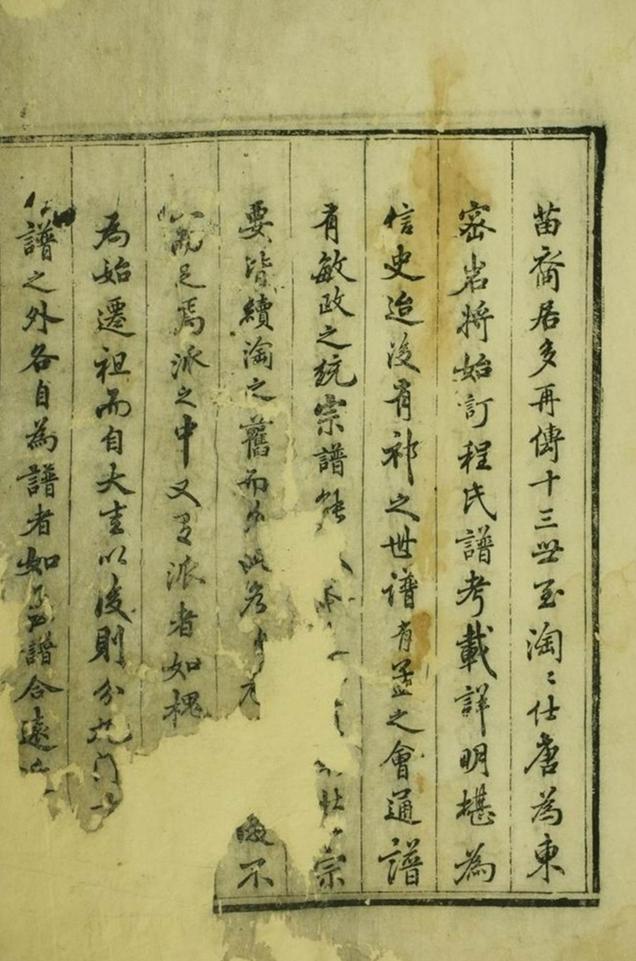 苗裔居多再傳十三世至淘〻仕唐為東
密岩將始訂程氏譜考載詳明堪為
信史迨後有祁之世譜有孟之會通譜
有敏政之統宗譜 宗
要皆續淘之舊而外此 不
足焉派之中又有派者如槐
為始遷祖而自大圭以後則分
譜之外各自為譜者如 譜合遠